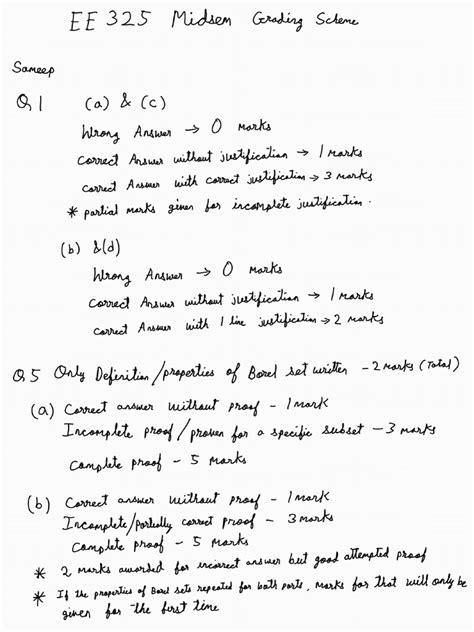 EE 325 Midsem Grading Scheme
Sameep
Q1 (a) & (c)
Wrong Answer → 0 marks
Correct Answer without justification → 1 marks
Correct Answer with correct justification → 3 marks
* partial marks given for incomplete justification.
(b) &(d)
Wrong Answer → 0 marks
Correct Answer without justification → 1 marks
Correct Answer with 1 line justification → 2 marks
Q5 Only Definition/properties of Borel set written - 2 marks (Total)
(a) Correct answer without proof - 1 mark
Incomplete proof/proven for a specific subset - 3 marks
Complete proof - 5 marks
(b) Correct answer without proof - 1 mark
Incomplete/partially correct proof - 3 marks
Complete proof - 5 marks
* 2 marks awarded for incorrect answer but good attempted proof
* If the properties of Borel sets repeated for both parts, marks for that will only be
given for the first time